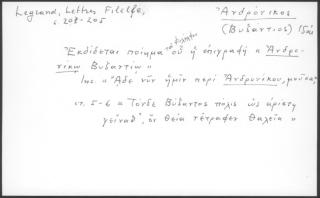 Legrand, Lettres Filelfe,
σ. 204-205
Ἀνδρόνικος
(Βυζάντιος) 15ος
Ἐκδίδεται ποίημα τοῦ Φιλέλφου οὗ ἡ ἐπιγραφή « Ἀνδρο-
νίκῳ Βυζαντίῳ »
Ἀρχ. « Ἄδε νῦν ἡμῖν περὶ Ἀνδρονίκου, μοῦσα,
στ. 5-6 « Τόνδε Βύζαντος πόλις ὡς ἀρίστη
γείναθ', ὃν θεία τέτραφεν Θαλεία »